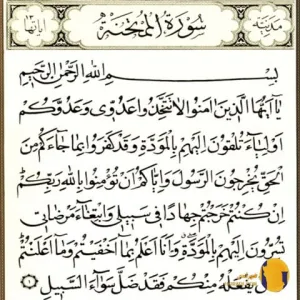 مدنية سورة الممتحنة آياتها ١٣
بسم الله الرحمن الرحيم
يا أيها الذين آمنوا لا تتخذوا عدوي وعدوكم
أولياء تلقون إليهم بالمودة وقد كفروا بما جاءكم من
الحق يخرجون الرسول وإياكم أن تؤمنوا بالله ربكم
إن كنتم خرجتم جهادا في سبيلي وابتغاء مرضاتي
تسرون إليهم بالمودة وأنا أعلم بما أخفيتم وما أعلنتم
يفعله منكم فقد ضل سواء السبيل ١